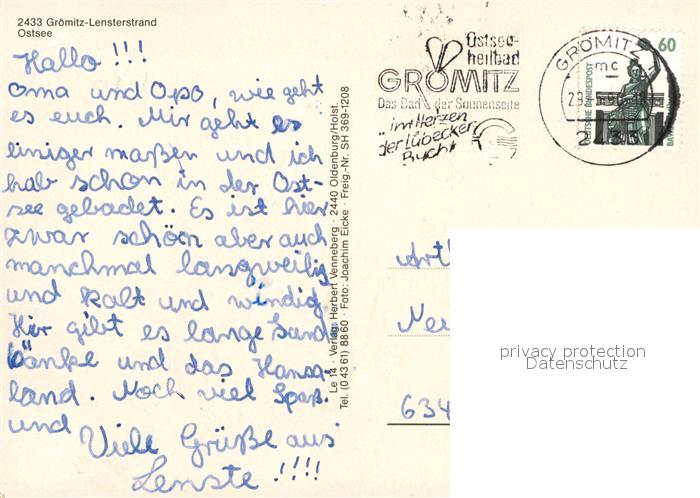 2433 Grömitz-Lensterstrand
Ostsee
Hallo !!!
Oma und Opa, wie geht
es euch. Mir geht es
einiger maßen und ich
hab schon in der Ost-
see gebadet. Es ist hier
zwar schön aber auch
manchmal langweilig
und kalt und windig.
Hir gibt es lange Sand
bänke und das Hansa-
land. Noch viel Spaß.
und Viele Grüße aus
Lenste !!!!
Le 14 · Verlag Herbert Venneberg · 2440 Oldenburg/Holst.
Tel. (0 43 61) 88 60 · Foto: Joachim Eicke · Freig.-Nr. SH 369-1208
Ostsee-
heilbad
GRÖMITZ
Das Bad der Sonnenseite
„im Herzen
der Lübecker
Bucht
GRÖMITZ
mc
2433
60
DEUTSCHE BUNDESPOST
634
privacy protection
Datenschutz